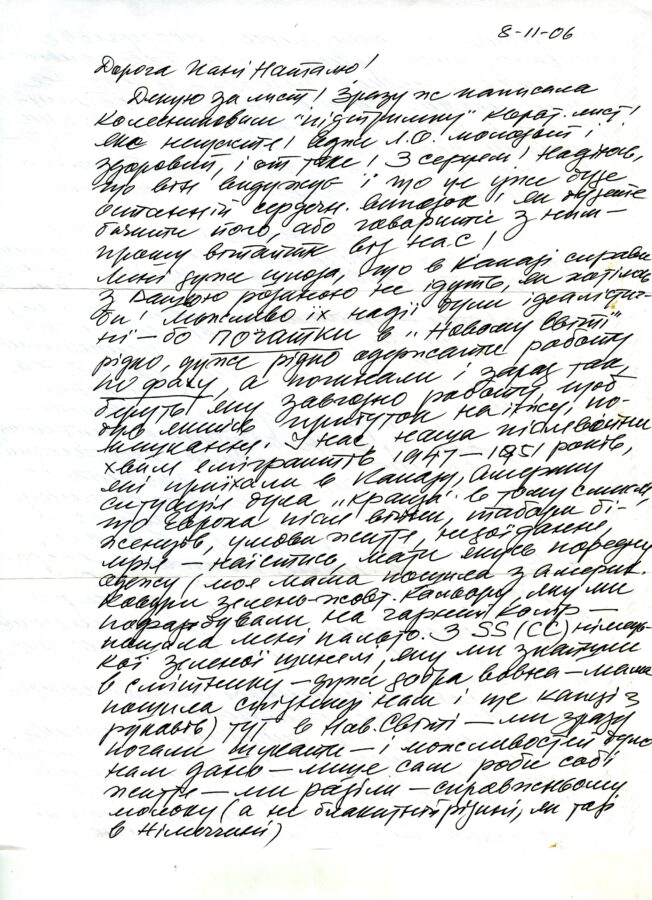 8-11-06
Дорога Пані Наталю!
Дякую за лист! Зразу ж написала
Колесниковим "підтримку" корот. лист!
адже Л.О. молодий і
здоровий, і от таке! З серцем! Надіюсь,
що він видужує і що це уже буде
останній сердечн. випадок і як будете
бачити його, або говорити з ним —
прошу вітайте від нас!
Мені дуже шкода, що в Канаді справи
з Вашою родиною не ідуть, як хотілось
би! Можливо їх надії були ідеалістич-
ні — бо початки в „Новому Світі"
рідко, дуже рідко одержати роботу
по фаху, а починали і зараз так,
беруть яку завгодно роботу, щоб
був якийсь прибуток на їжу, по-
мешкання. У нас, наша післявоєнна
хвиля емігрантів 1947—1951 років,
які приїхали в Канаду, Америку
ситуація була „краща" в тому смислі,
що Европа після війни, табори бі-
женців, умови життя, недоїдання,
мрія — наїстись, мати якусь порядну
одежу (моя мама пошила з америк.
ковдри зелено-жовт. кольору, яку ми
пофарбували на гарний колір —
пошила мені пальто. З SS (СС) німець-
кої зеленої шинелі, яку ми знайшли
в смітнику — дуже добра вовна — мама
пошила спідниці нам і ще капці з
рукавів) тут в Нов. Світі — ми зразу
почали шукати — і можливостей було
нам дано — лише сам роби собі
життя — ми раділи — справжньому
молоку (а не блакитній рідині, як тоді
в Німеччині)